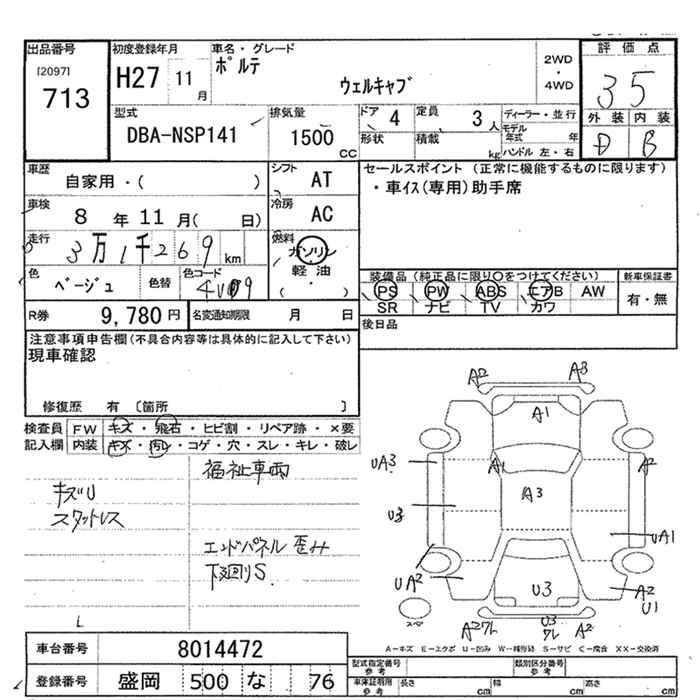 出品番号 初度登録年月 車名・グレード 評価点
[2097] 713 H27 11月 ポルテ ウェルキャブ 2WD・4WD 35
外装 内装
D B
型式 DBA-NSP141 排気量 1500 CC ドア 4 定員 3人 ディーラー・並行
形状 積載 kg モデル年式 年
ハンドル 左・右
車歴 自家用・( ) シフト AT セールスポイント (正常に機能するものに限ります)
・車イス(専用)助手席
車検 8年11月( 日) 冷房 AC
走行 3万1千269km 燃料 ガソリン・軽油・( )
色 ベージュ 色替 色コード
装備品 (純正品に限り〇をつけてください) 新車保証書
PS PW ABS エアB AW 有・無
SR ナビ TV カワ
R券 9,780円 名変通知期限 月 日 後日品
注意事項申告欄(不具合内容等は具体的に記入して下さい)
現車確認
修復歴 有 〔箇所 〕
検査員 FW キズ・飛石・ヒビ割・リペア跡・×要
記入欄 内装 キズ・汚レ・コゲ・穴・スレ・キレ・破レ
福祉車両
キズU
スタットレス
エンドパネル歪み
下廻りS
L
A2 A3
A1
UA3 A1 A2
A3
U3
UA1
UA2 U3 A2
U1
スペ A2ワレ U3ワレ A2
A-キズ E-エクボ U-凹み W-補修跡 S-サビ C-腐食 XX-交換済
車台番号 8014472
登録番号 盛岡 500 な 76
型式指定番号 参考 類別区分番号 参考
車庫証明用 参考 長さ cm 幅 cm 高さ cm